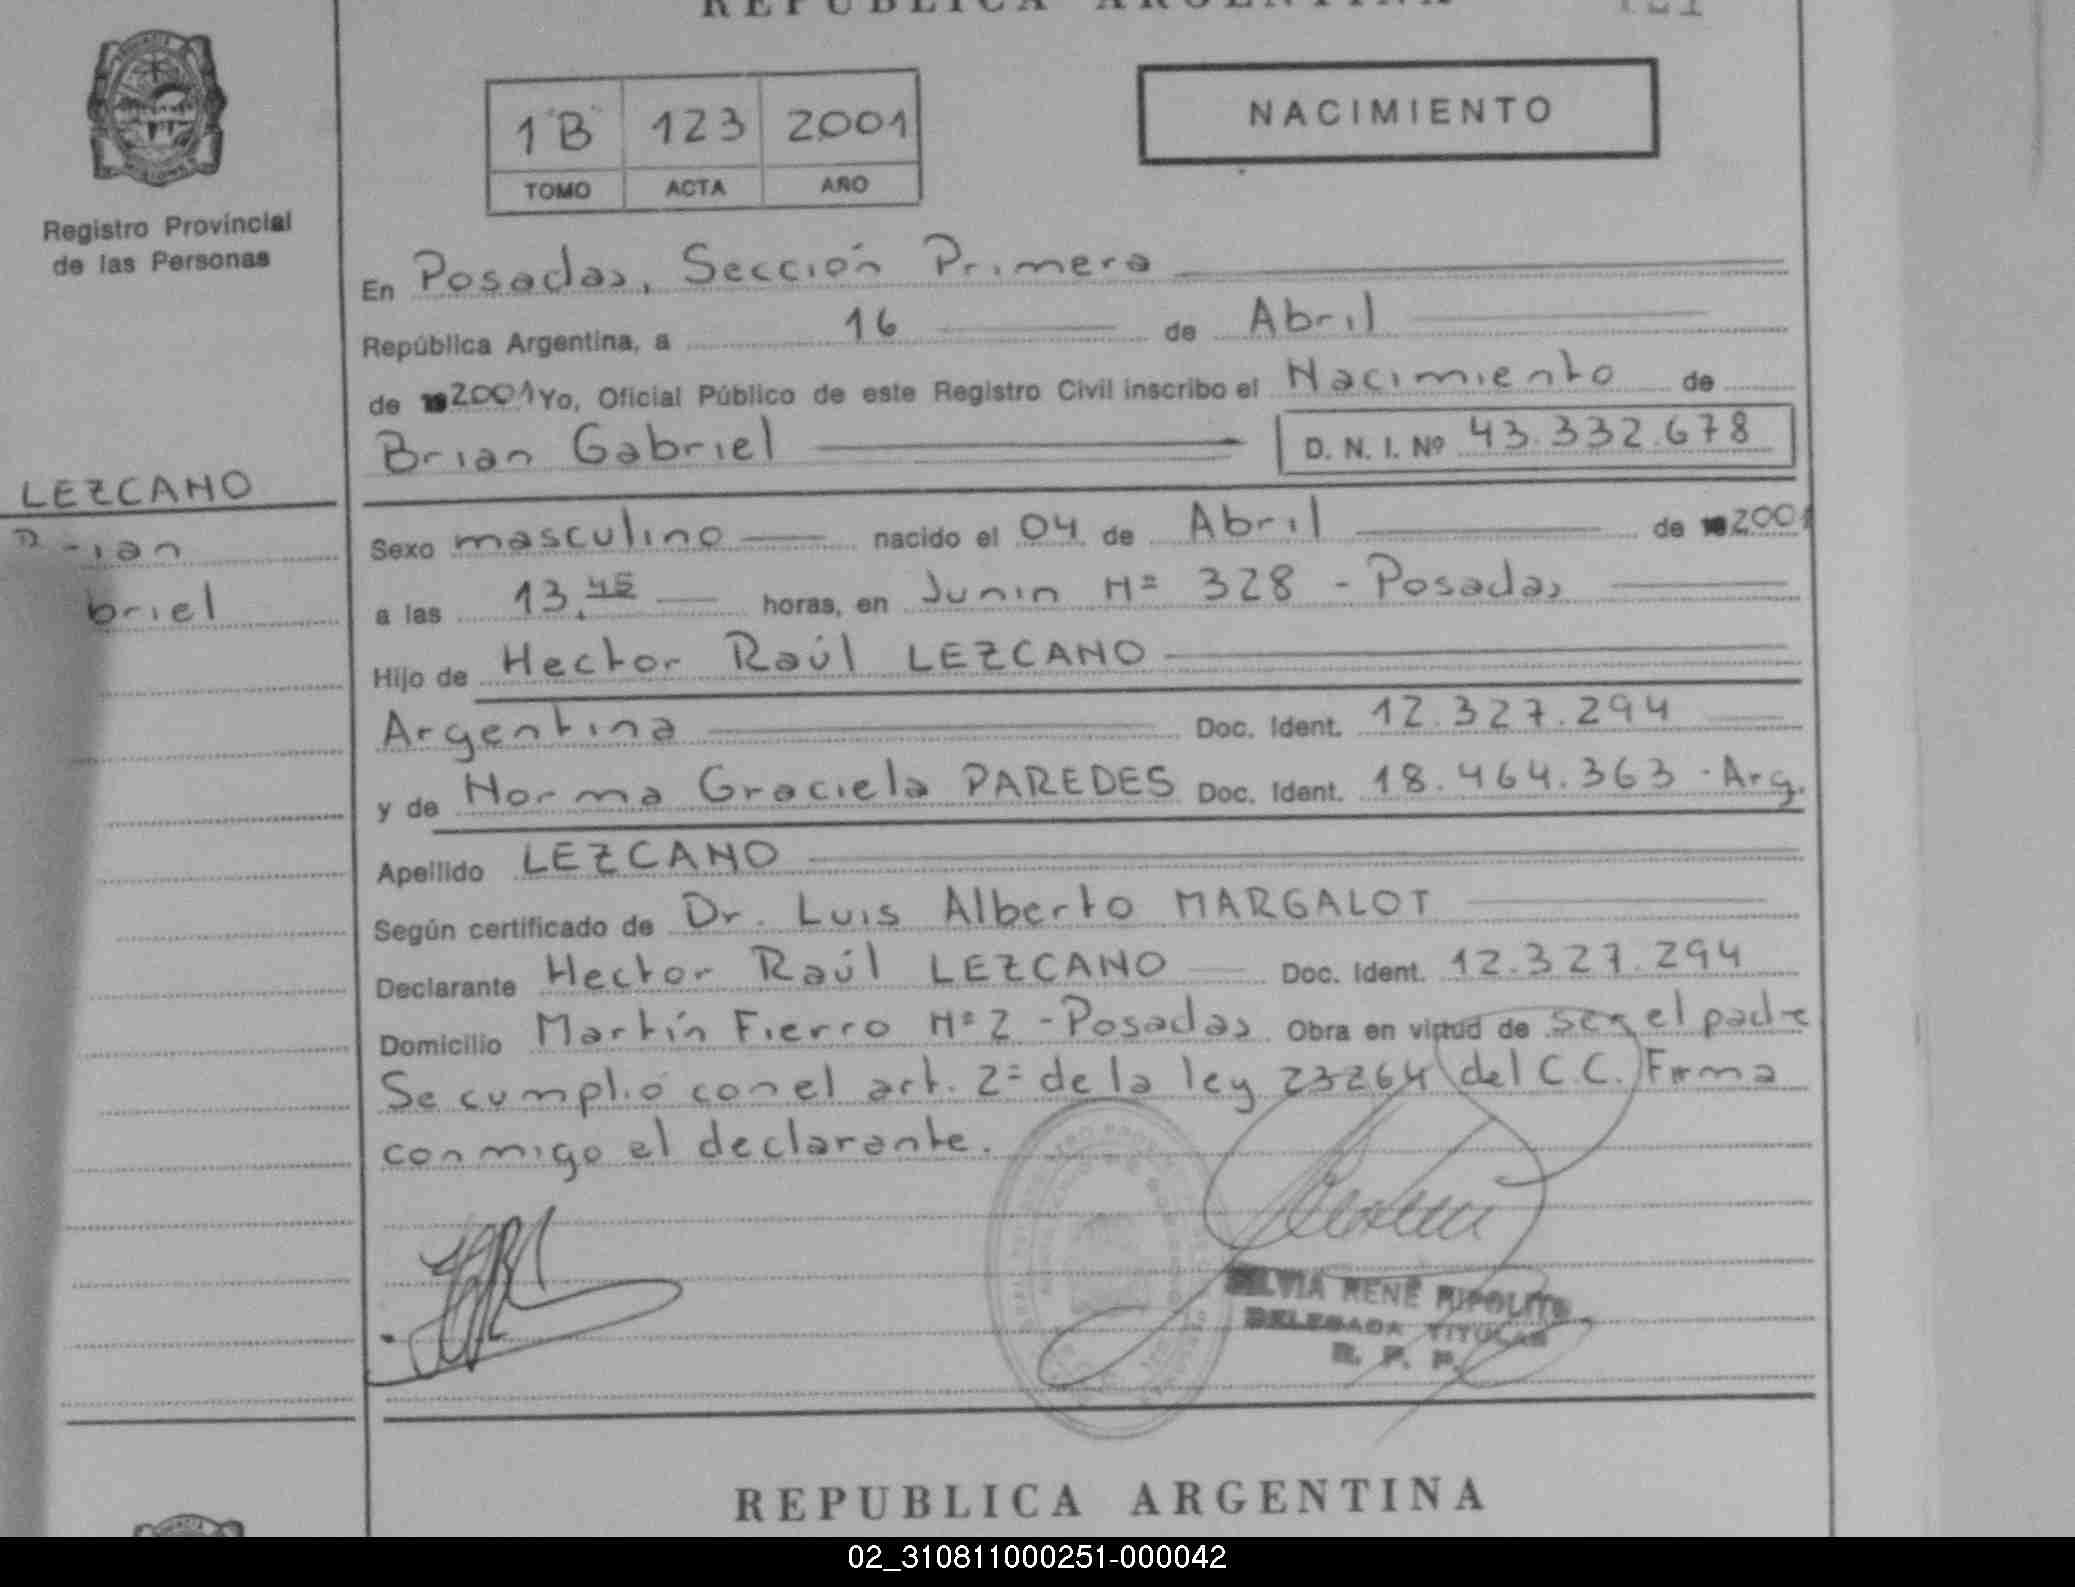 REPUBLICA ARGENTINA
121
Registro Provincial
de las Personas
1 "B" 123 2001
TOMO ACTA AÑO
NACIMIENTO
En Posadas, Sección Primera
República Argentina, a 16 de Abril
de 19 2001 Yo, Oficial Público de este Registro Civil inscribo el Nacimiento de
Brian Gabriel D. N. I. Nº 43.332.678
LEZCANO
Sexo masculino nacido el 04 de Abril de 19 2001
a las 13.45 horas, en Junin Nº 328 - Posadas
briel
Hijo de Hector Raúl LEZCANO
Argentina Doc. Ident. 12.327.294
y de Norma Graciela PAREDES Doc. Ident. 18.464.363 - Arg.
Apellido LEZCANO
Según certificado de Dr. Luis Alberto MARGALOT
Declarante Hector Raúl LEZCANO Doc. Ident. 12.327.294
Domicilio Martín Fierro Nº 2 - Posadas Obra en virtud de ser el padre
Se cumplió con el art. 2º de la ley 23264 del C.C. Firma
conmigo el declarante.
SILVIA RENÉ RIPOLITO
DELEGADA TITULAR
R. P. P.
REPUBLICA ARGENTINA
02_310811000251-000042